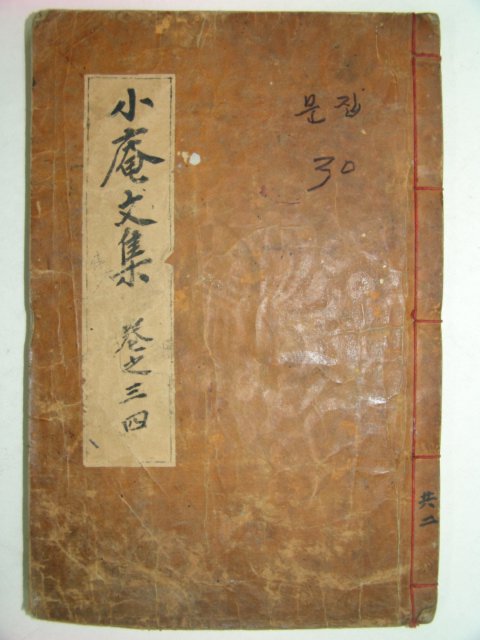 小庵文集 卷之三四
문집
30
共二